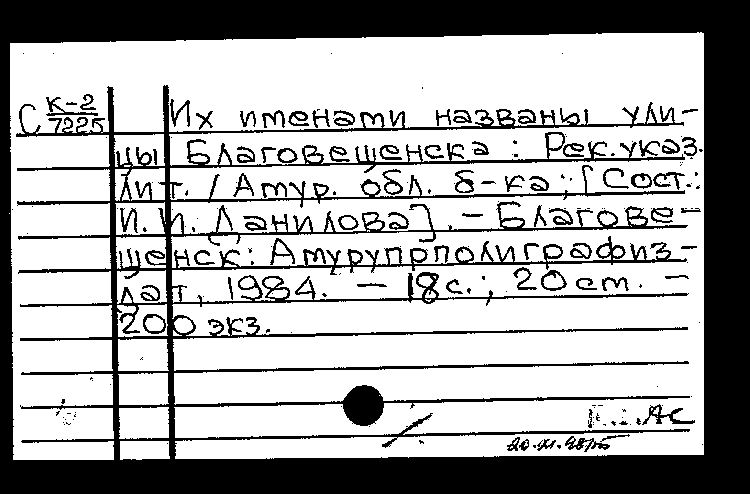 С К-2
7225
Их именами названы ули-
цы Благовещенска : Рек. указ.
лит. / Амур. обл. б-ка ; [Сост.:
И. И. Данилова]. – Благове-
щенск : Амурупрполиграфиз-
дат, 1984. – 18 с. ; 20 см. –
200 экз.